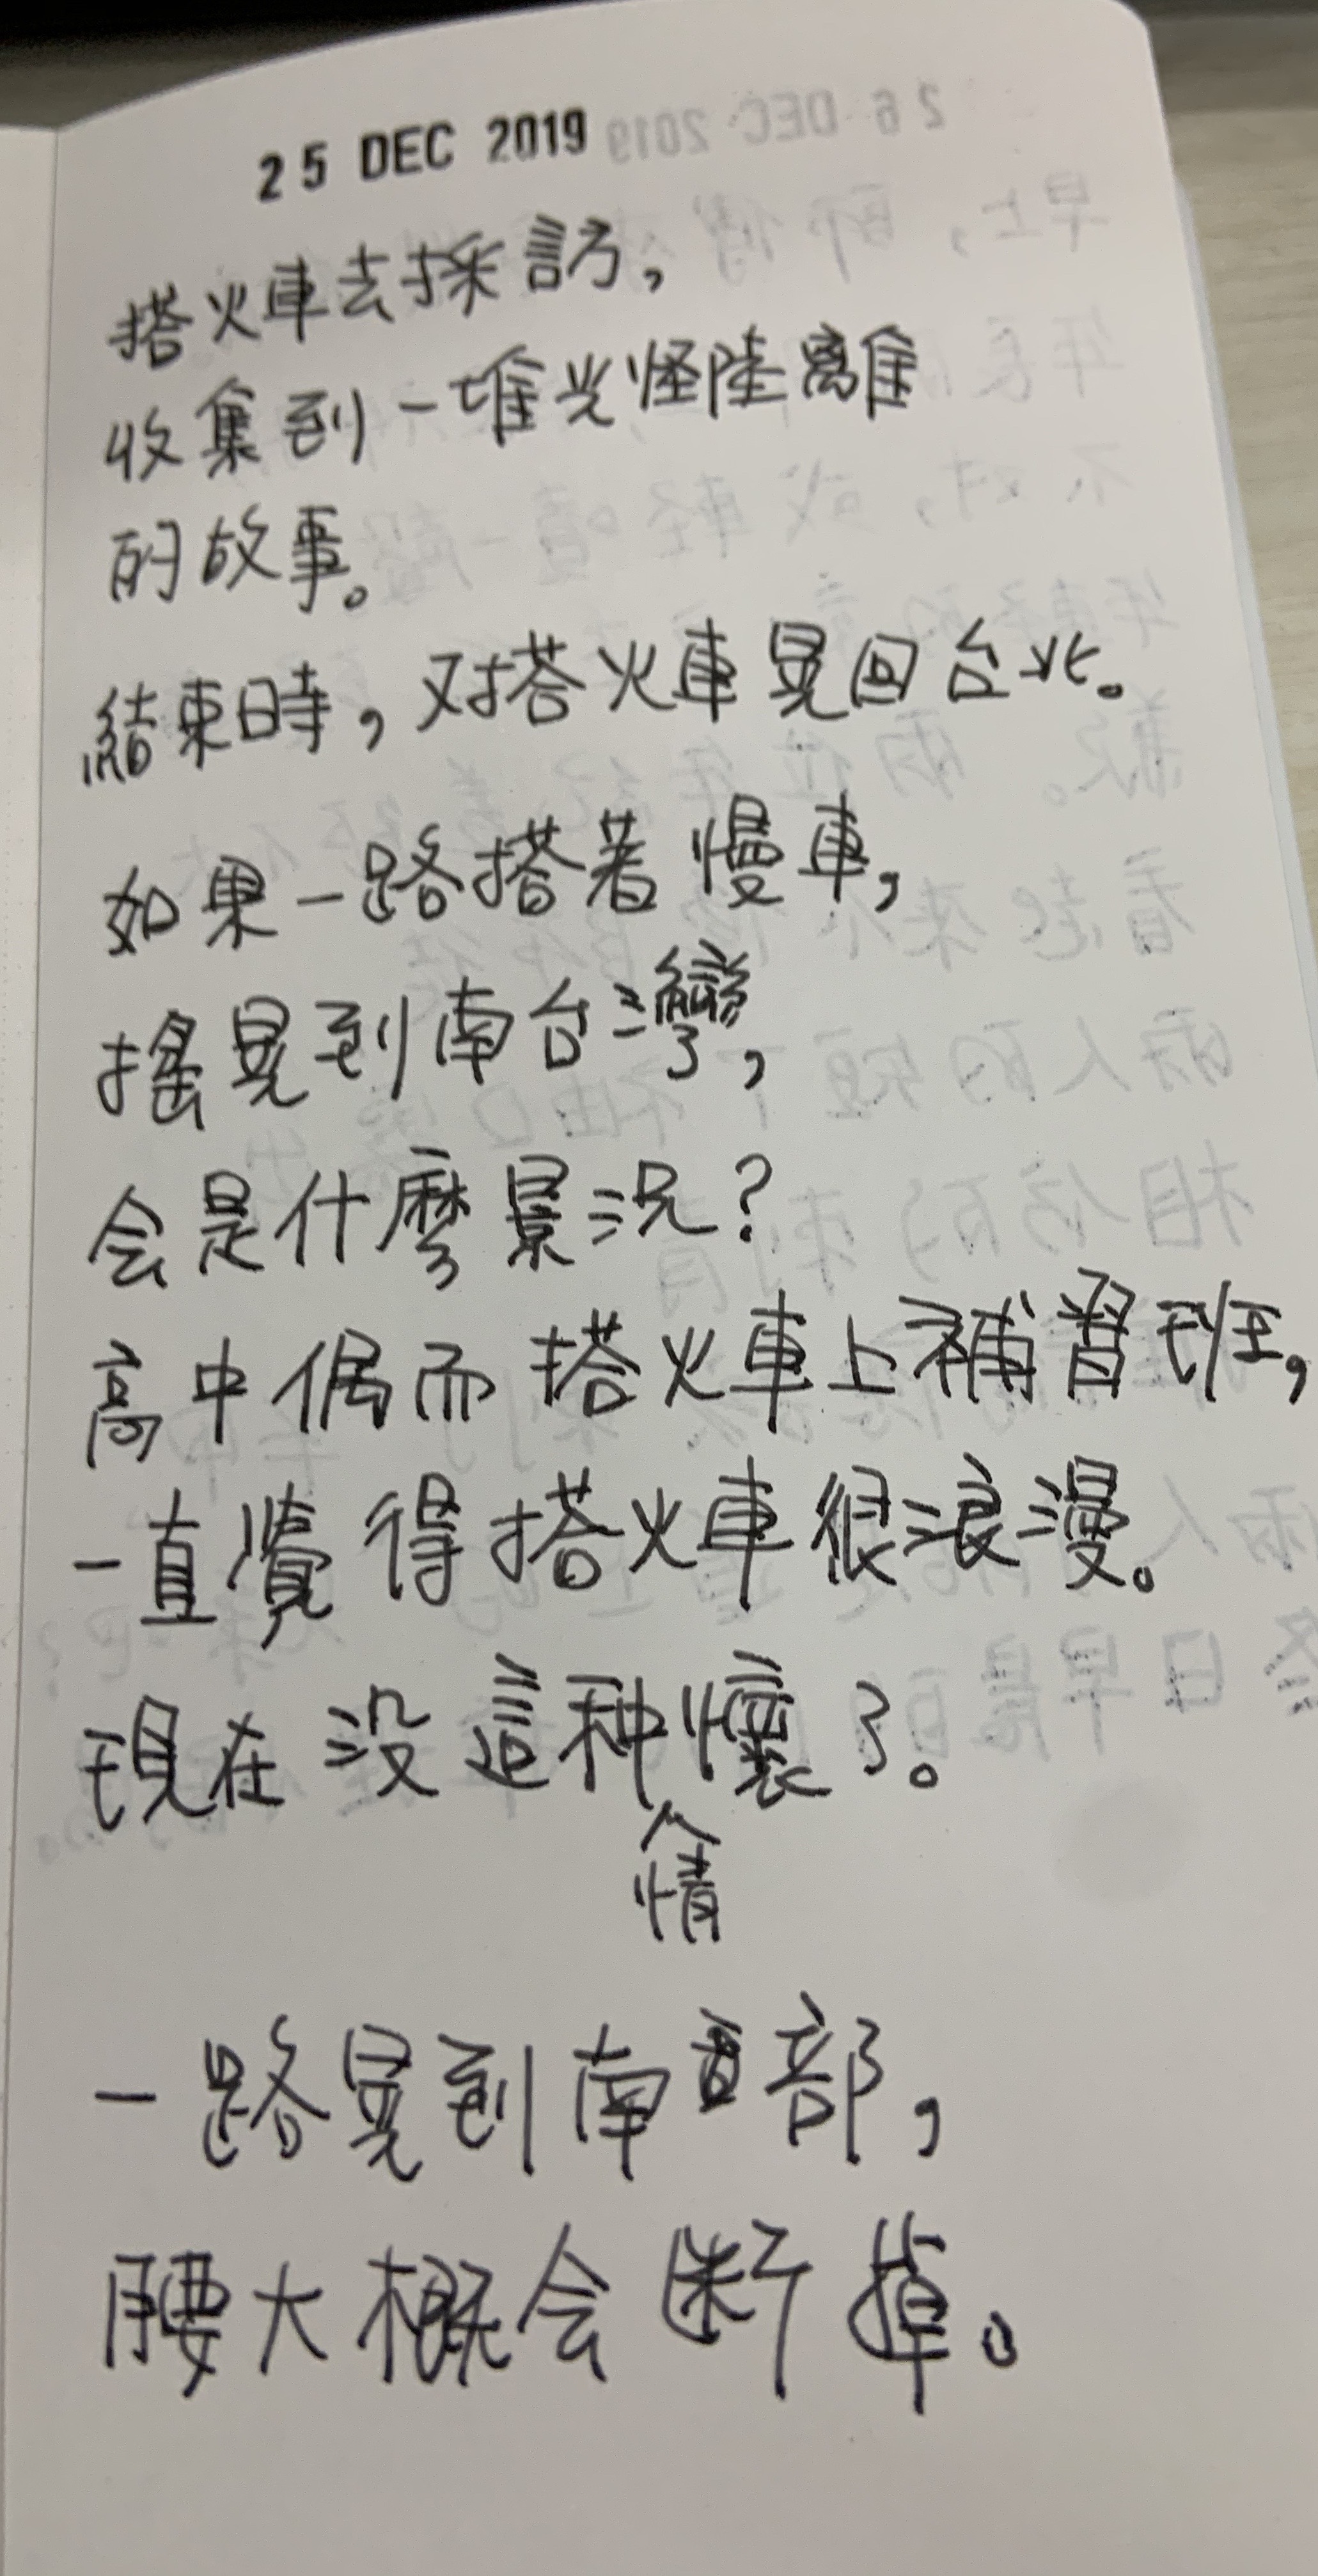 25 DEC 2019
搭火車去採訪,
收集到一堆光怪陸離
的故事。
結束時,又搭火車晃回台北。
如果一路搭著慢車,
搖晃到南台灣,
会是什麼景況?
高中偶而搭火車上補習班,
一直覺得搭火車很浪漫。
現在没這种情懷了。
一路晃到南部,
腰大概会断掉。